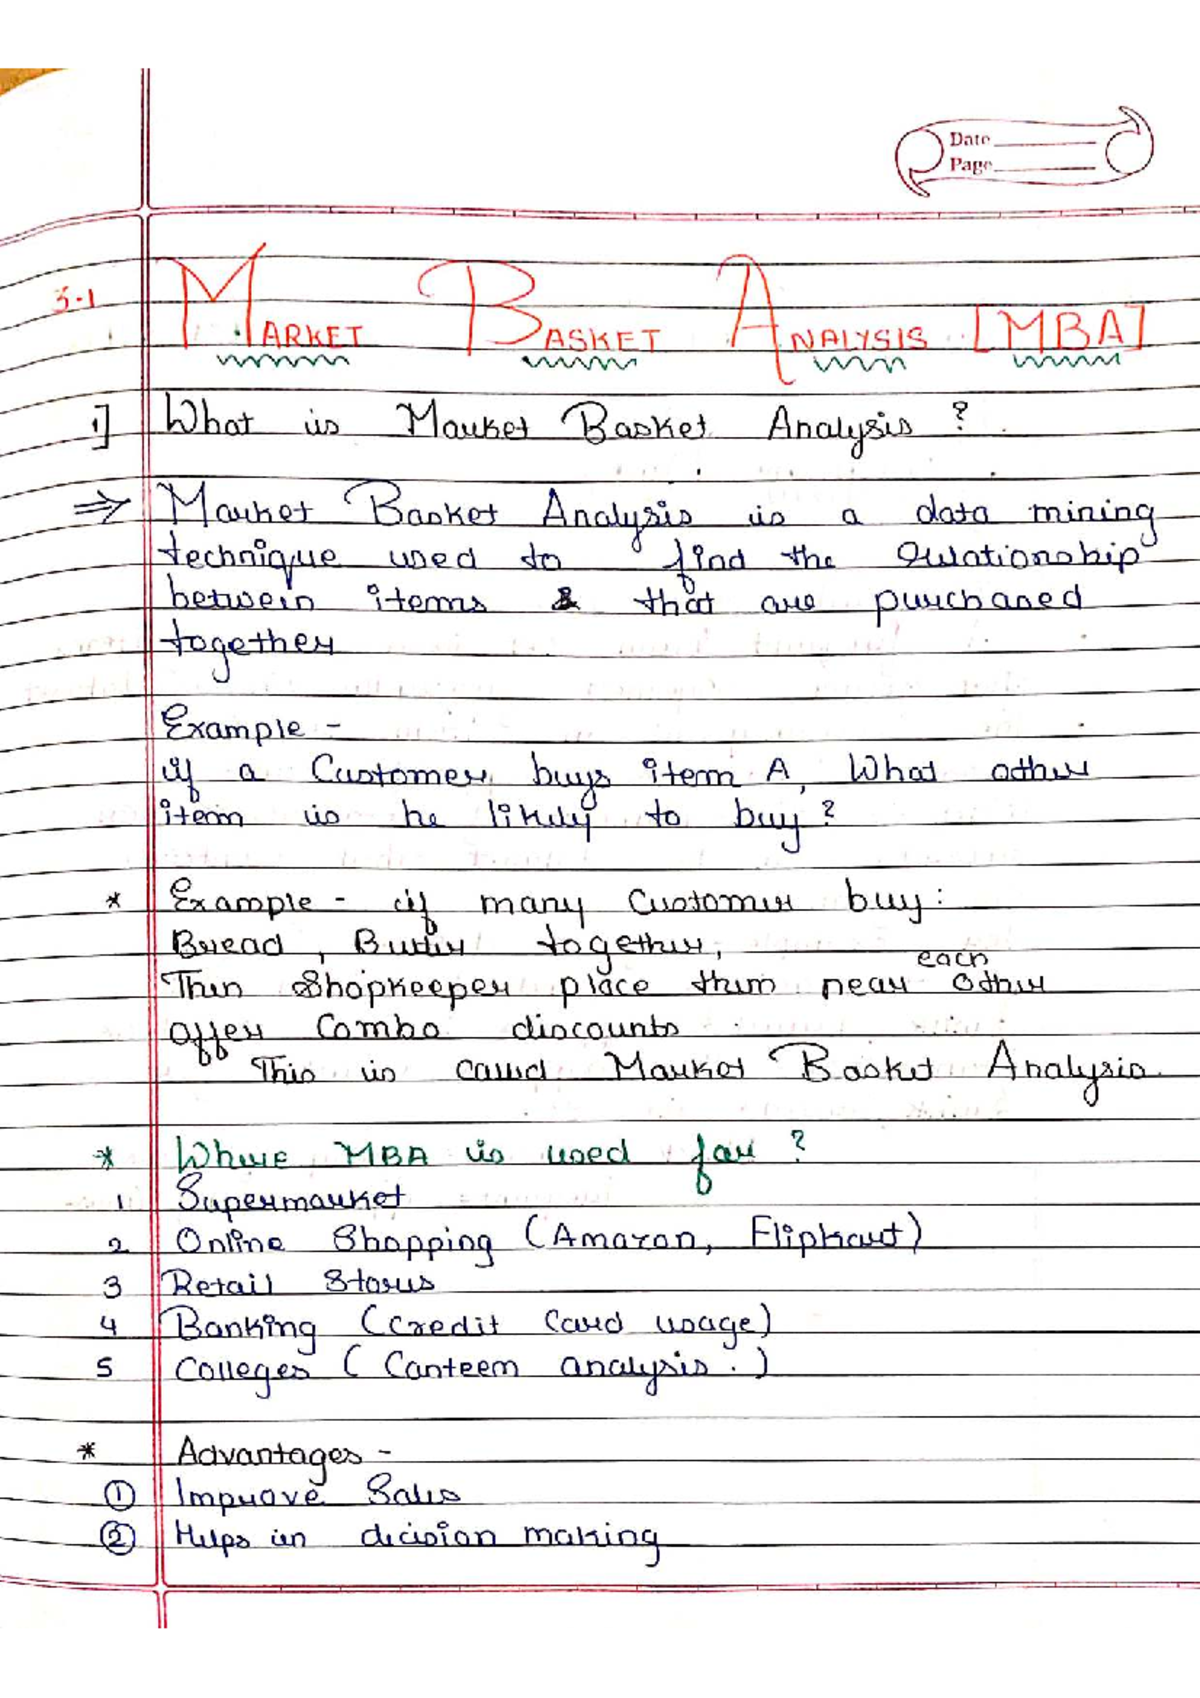 Date
Page
3.1 MARKET BASKET ANALYSIS [MBA]
1] What is Market Basket Analysis ?
⇒ Market Basket Analysis is a data mining
technique used to find the relationship
between items & that are purchased
together
Example -
if a Customer buys item A, What other
item is he likely to buy ?
* Example - if many Customer buy :
Bread , Butter together,
Then Shopkeeper place them near each other
offer Combo discounts
This is called Market Basket Analysis.
* Where MBA is used for ?
1 Supermarket
2 Online Shopping (Amazon, Flipkart)
3 Retail Stores
4 Banking (Credit Card usage)
5 Colleges ( Canteem analysis . )
* Advantages -
① Improve Sales
② Helps in decision making